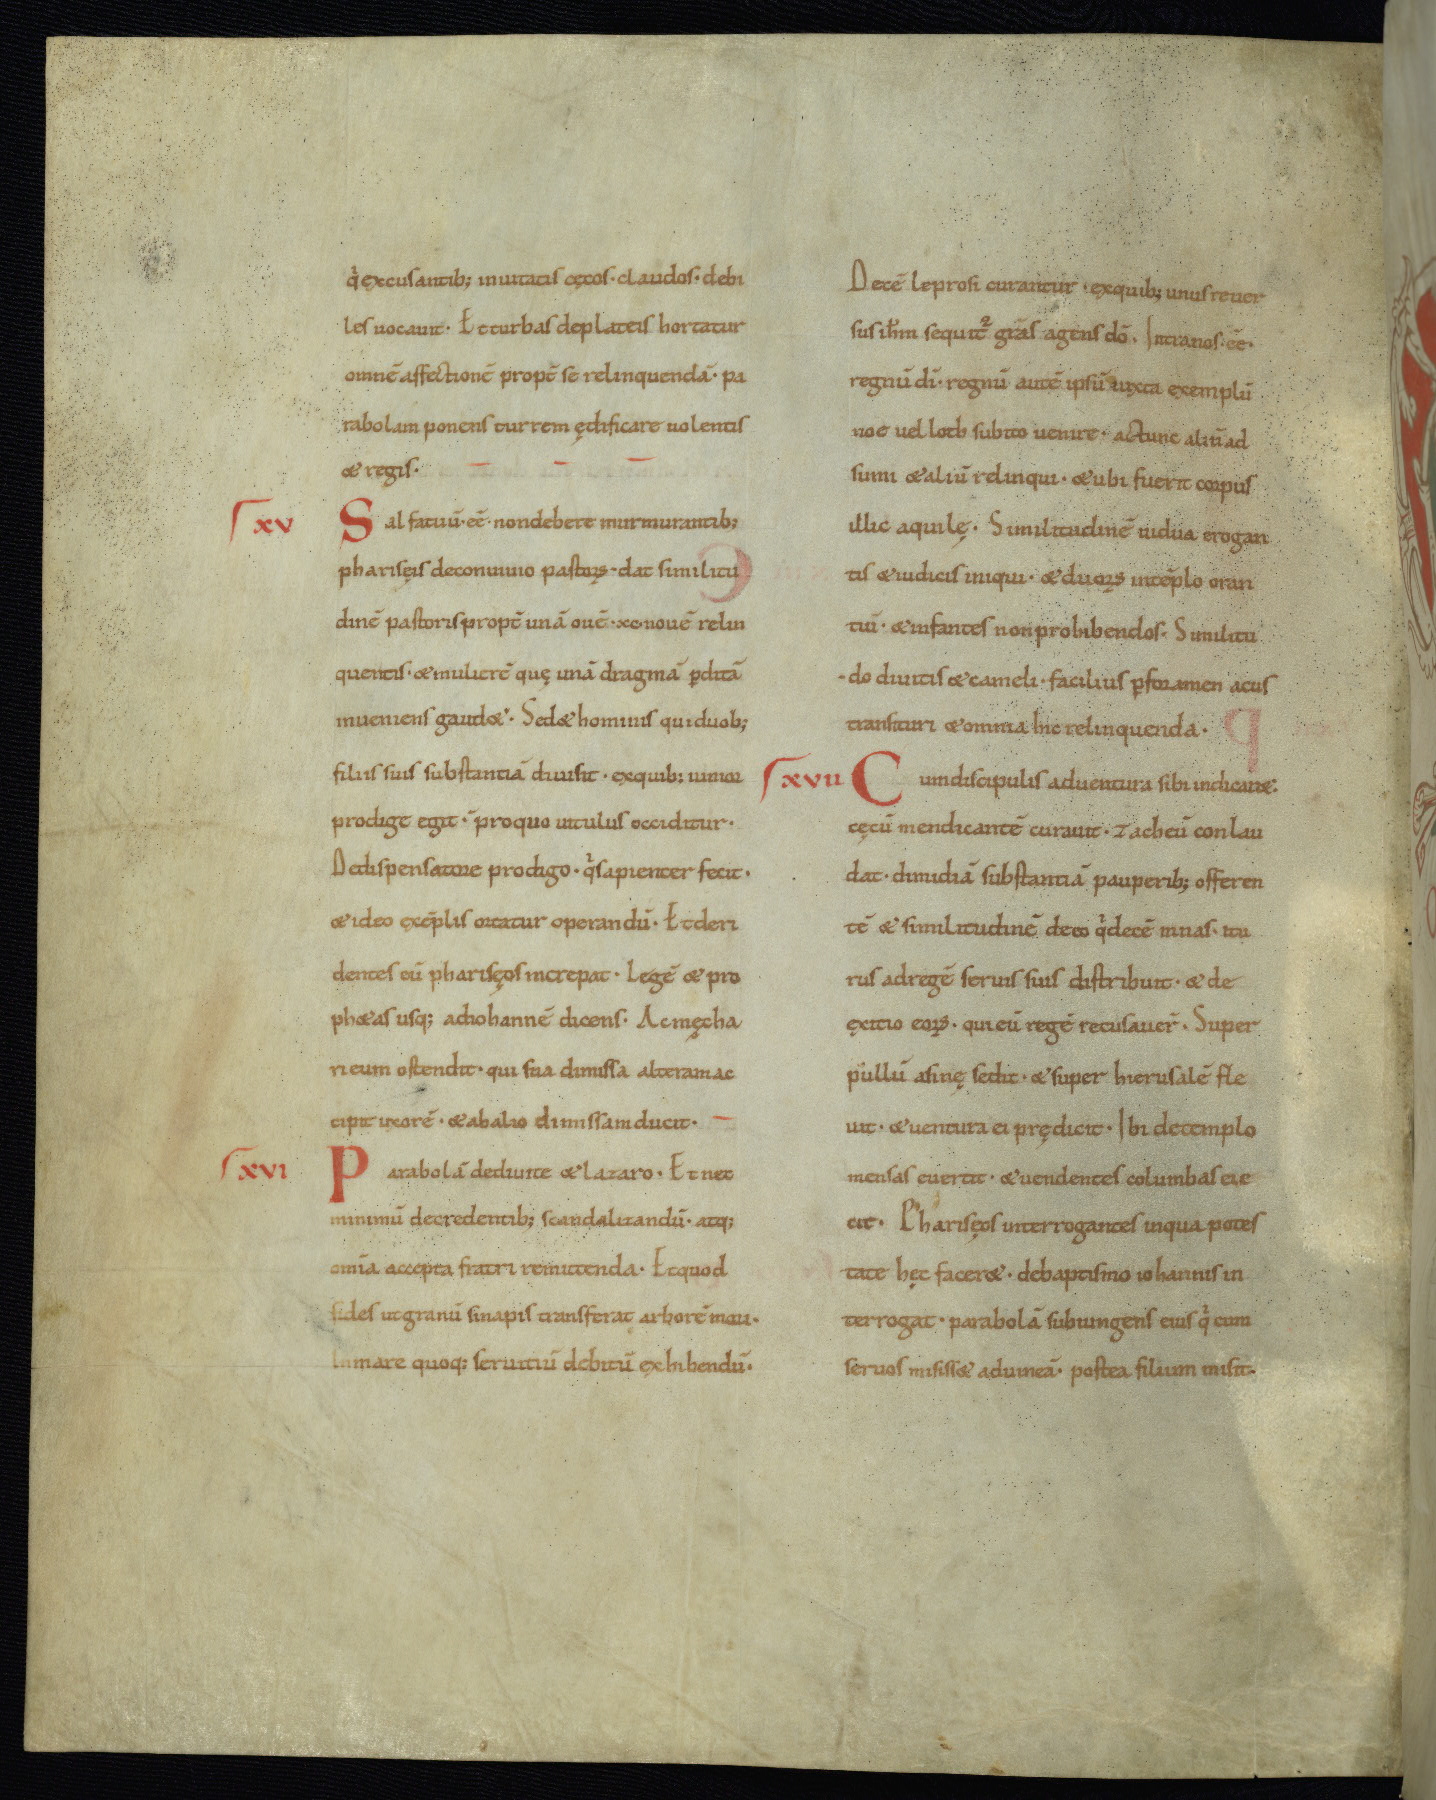 qꝰ excusantib; inuitatis cęcos · claudos · debi
les uocauit · Et turbas deplateis hortatur
omnē affectionē propt̄ sē relinquendā · pa
rabolam ponens turrem ędificare uolentis
& regis ·
xv Sal fatuū · eē · nondebere murmurantib;
pharisęis deconuiuio pastoꝝ · dat similitu
dinē pastoris propt̄ unā ouē · xcnouē relin
quentis · & mulierē quę unā dragmā ꝑditā
inueniens gaud& · Sed & hominis qui duob;
filiis suis substantiā diuisit · exquib; iunior
prodige egit · pro quo uitulus occiditur ·
Dedispensatore prodigo · qꝰ sapienter fecit ·
& ideo exēplis ortatur operandū · Et deri
dentes eū pharisęos increpat · Legē & pro
ph&as usq; adiohannē dicens · Ac męcha
ri eum ostendit · qui sua dimissa alteram ac
cipit uxorē · & abalio dimissam ducit ·
xvi Parabolā dediuite & lazaro · Et nec
minimū decredentib; scandalizandū · atq;
omīa accepta fratri remittenda · Et quod
fides ut granū sinapis transferat arborē mori ·
In mare quoq; seruitiū debitū exhibendū ·
Decē leprosi curantur · exquib; unus reuer
sus ihm̄ sequit᷑ grās agens dō · Intra nos · eē ·
regnū dī · regnū autē ipsū iuxta exemplū
noe uel loth subito uenire · ac tunc aliū ad
sumi & aliū relinqui · & ubi fuerit corpus
illic aquilę · Similitudinē uidua erogan
tis & iudicis iniqui · & duoꝝ intēplo oran
tiū · & infantes non prohibendos · Similitu
do diuitis & cameli · facilius ꝑforamen acus
transituri & omnia hic relinquenda ·
xvii Cum discipulis aduentura sibi indicar& ·
cęcū mendicantē curauit · zacheū conlau
dat · dimidiā substantiā pauperib; offeren
tē & similitudinē deeo qꝰ decē mnas · itu
rus adregē seruis suis distribuit · & de
exitio eoꝝ · qui eū regē recusauer̄ · Super
pullū asinę sedit · & super hierusalē fle
uit · & uentura ei prędicit · Ibi detemplo
mensas euertit · & uendentes columbas eie
cit · Pharisęos interrogantes inqua potes
tate hęc facer& · debaptismo iohannis in
terrogat · parabolā subiungens eius qꝰ cum
seruos misiss& aduineā · postea filium misit ·